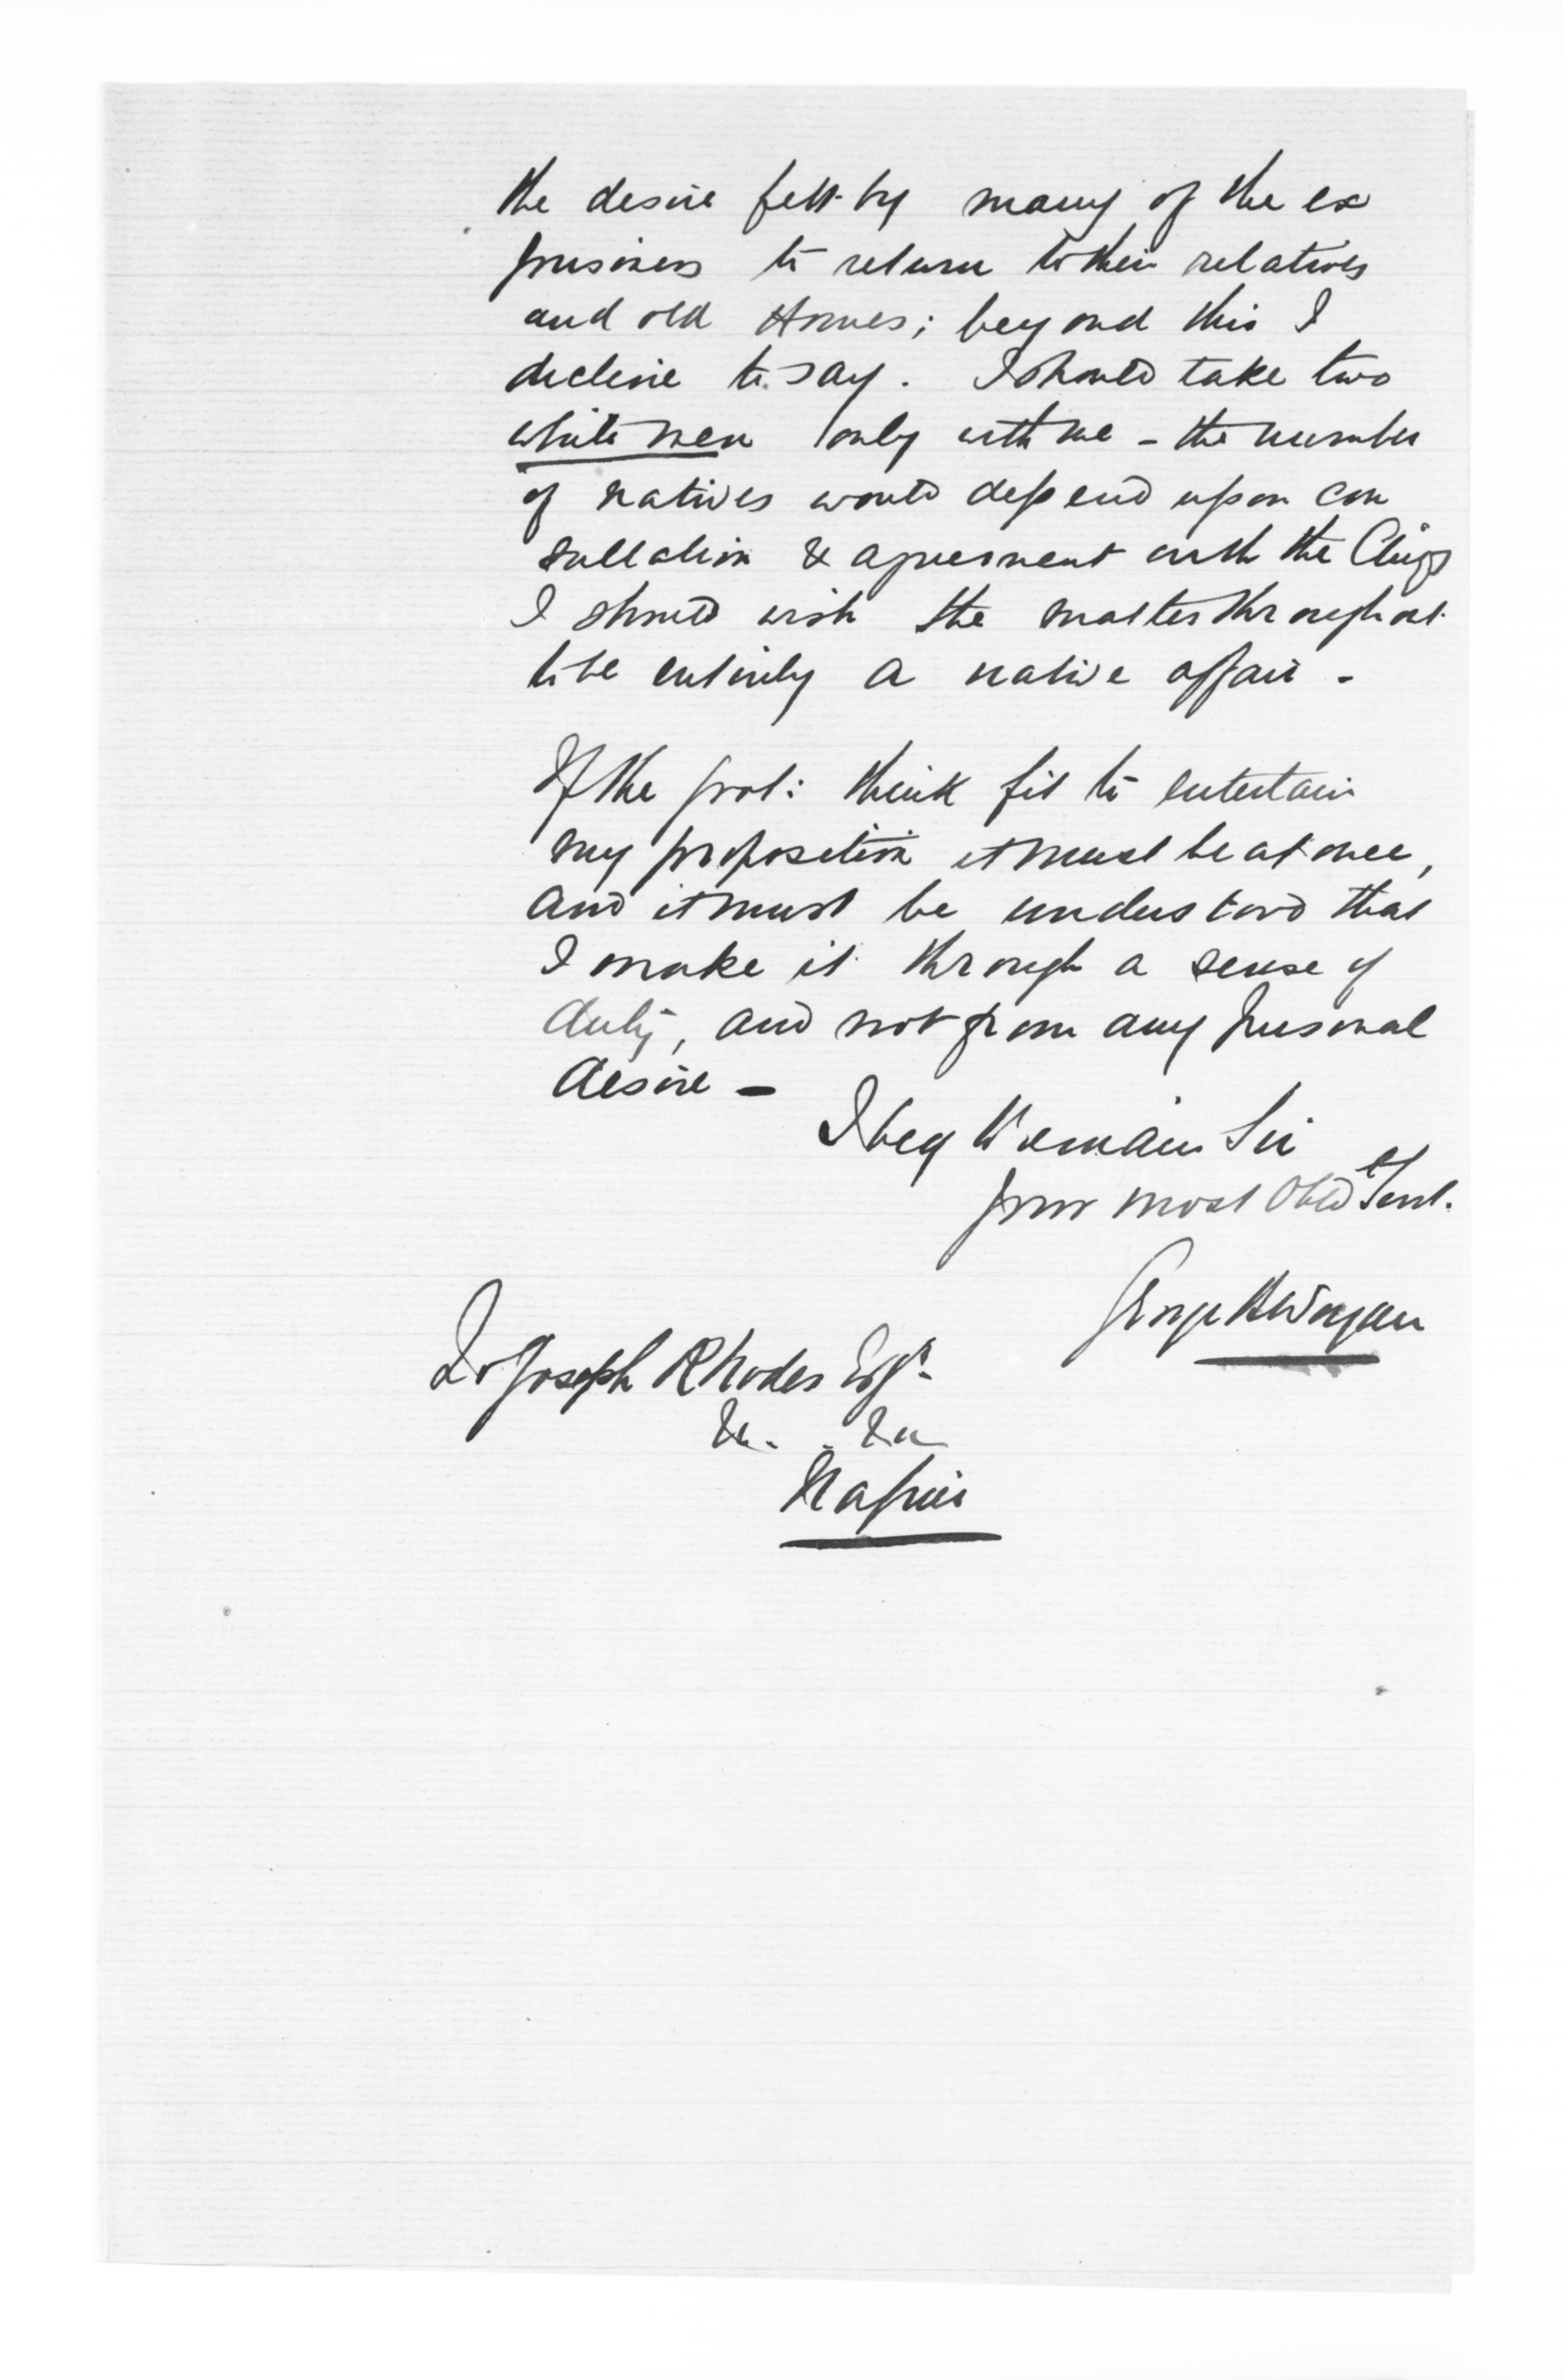 the desire felt by many of the ex
prisoners to return to their relatives
and old Homes; beyond this I
decline to say. I should take two
white men only with me - the number
of natives would depend upon con
sultation & agreement with the Chiefs
I should wish the matter throughout
to be entirely a native affair -
If the Govt: think fit to entertain
my proposition it must be at once,
and it must be understood that
I make it through a sense of
duty, and not from any personal
desire -
I beg to remain Sir
your most Obed Servt.
George H Worgan
To Joseph Rhodes Esqr.
&c. . &c
Napier